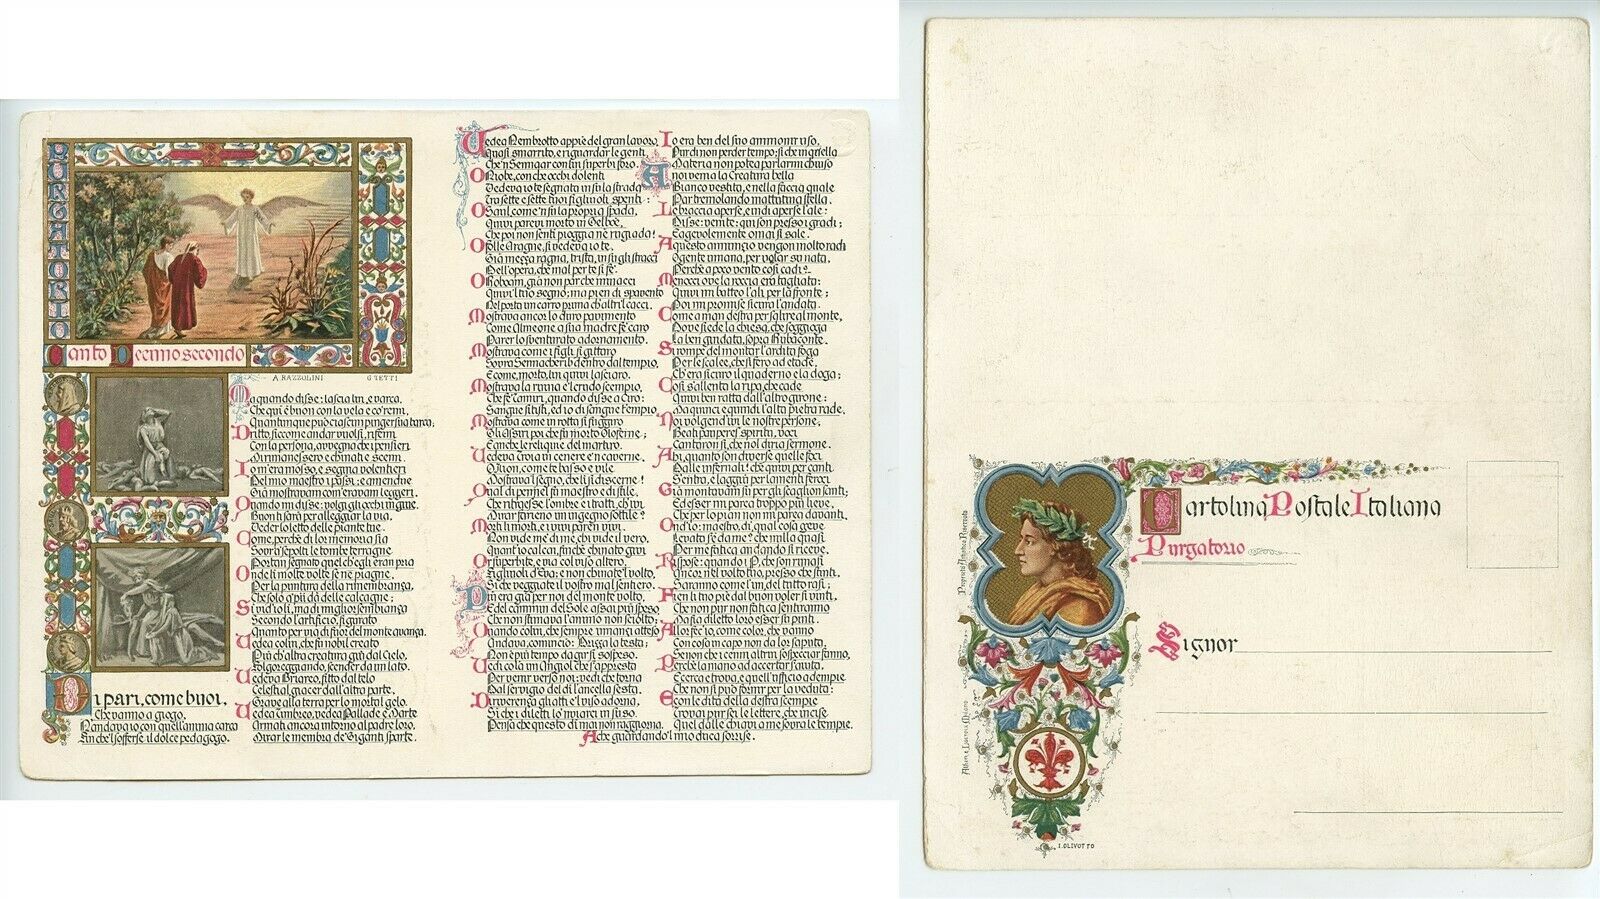 PURGATORIO
Canto Decimo secondo
A. RAZZOLINI G. TETTI
Di pari, come buoi,
Che vanno a giogo,
N'andava io con quell'anima carca
Fin che'l sofferse il dolce pedagogo.
Ma quando disse: lascia lui, e varca,
Che qui è buon con la vela e co'remi,
Quantunque può ciascun pinger sua barca;
Dritto, sì come andar vuolsi, rife'mi
Con la persona, avvegna che i pensieri
Mi rimanessero e chinati e scemi.
Io m'era mosso, e seguia volentieri
Del mio maestro i passi: e amendue
Già mostravam com'eravam leggeri.
Quando mi disse: volgi gli occhi in giue:
Buon ti sarà per alleggiar la via,
Veder lo letto delle piante tue.
Come, perchè di lor memoria sia
Sovr'a'sepolti le tombe terragne
Portan segnato quel ch'egli eran pria
Onde lì molte volte se ne piagne,
Per la puntura della rimembranza,
Che solo a'pii dà delle calcagne:
Sì vid'io lì, ma di miglior sembianza
Secondo l'artificio, figurato
Quanto per via di fuor del monte avanza.
Vedea colui, che fu nobil creato
Più ch'altra creatura giù dal Cielo,
Folgoreggiando, scender da un lato.
Vedeva Briareo, fitto dal telo
Celestial giacer dall'altra parte,
Grave alla terra per lo mortal gelo.
Vedea Timbreo, vedea Pallade e Marte
Armati ancora intorno al padre loro,
Mirar le membra de'Giganti sparte.
Vedea Nembrotto appiè del gran lavoro,
Quasi smarrito, e riguardar le genti,
Che'n Sennaar con lui superbi foro.
O Niobe, con che occhi dolenti
Vedeva io te segnata in su la strada
Tra sette e sette tuoi figliuoli spenti!
O Saul, come'n su la propria spada,
Quivi parevi morto in Gelboè,
Che poi non sentì pioggia nè rugiada!
O folle Aragne, sì vedeva io te,
Già mezza ragna, trista, in su gli stracci
Dell'opera, che mal per te si fe'.
O Roboam, già non par che minacci
Quivi'l tuo segno; ma pien di spavento
Nel porta un carro prima ch'altri'l cacci.
Mostrava ancor lo duro pavimento
Come Almeone a sua madre fe' caro
Parer lo sventurato adornamento.
Mostrava come i figli si gittaro
Sovra Sennacherib dentro dal tempio,
E come, morto, lui quivi lasciaro.
Mostrava la ruina e'l crudo scempio,
Che fe' Tamiri, quando disse a Ciro:
Sangue sitisti, ed io di sangue t'empio.
Mostrava come in rotta si fuggiro
Gli Assiri poi che fu morto Oloferne;
E anche le reliquie del martiro.
Vedeva Troia in cenere e'n caverne.
O Ilion, come te basso e vile
Mostrava'l segno, che lì si discerne!
Qual di pennel fu maestro e di stile,
Che ritraesse l'ombre e i tratti, ch'ivi
Mirar farieno un ingegno sottile?
Morti li morti, e i vivi paren vivi.
Non vide me'di me chi vide il vero,
Quant'io calcai, finchè chinato givi
Or superbite, e via col viso altero,
Figliuoli d'Eva; e non chinate'l volto,
Sì che veggiate il vostro mal sentiero.
Più era già per noi del monte volto,
E del cammin del Sole assai più speso
Che non stimava l'animo non sciolto;
Quando colui, che sempre innanzi atteso
Andava, cominciò: Drizza la testa;
Non è più tempo da gir sì sospeso.
Vedi colà un Angiol che s'appresta
Per venir verso noi; vedi che torna
Dal servigio del dì l'ancella sesta.
Di reverenza gli atti e'l viso adorna,
Sì che i diletti lo'nviarci in suso.
Pensa che questo dì mai non raggiorna.
Io era ben del suo ammonir uso,
Pur di non perder tempo; sì che in quella
Materia non potea parlarmi chiuso
A noi venia la Creatura bella
Bianco vestita, e nella faccia quale
Par tremolando mattutina stella.
Le braccia aperse, e indi aperse l'ale:
Disse: venite: qui son presso i gradi;
E agevolemente omai si sale.
A questo annunzio vengon molto radi
O gente umana, per volar su nata,
Perchè a poco vento così cadi?
Menocci ove la roccia era tagliata:
Quivi mi batteo l'ali per la fronte;
Poi mi promise sicura l'andata.
Come a man destra per salire al monte,
Dove siede la chiesa, che soggioga
La ben guidata, sopra Rubaconte.
Si rompe del montar l'ardita foga
Per le scalee, che si fero ad etade,
Ch'era sicuro il quaderno e la doga;
Così s'allenta la ripa, che cade
Quivi ben ratta dall'altro girone:
Ma quinci e quindi l'alta pietra rade.
Noi volgend'ivi le nostre persone,
Beati pauperes spiritu, voci
Cantaron sì, che nol diria sermone.
Ahi quanto son diverse quelle foci
Dalle infernali! che quivi per canti
S'entra, e laggiù per lamenti feroci
Già montavam su per gli scaglion santi;
Ed esser mi parea troppo più lieve,
Che per lo pian non mi parea davanti.
Ond'io: maestro, di', qual cosa greve
Levata s'è da me? che nulla quasi
Per me fatica andando si riceve.
Rispose: quando i P, che son rimasi
Ancor nel volto tuo, presso che stinti,
Saranno come l'un del tutto rasi;
Fien li tuo piè dal buon voler sì vinti,
Che non pur non fatica sentiranno
Ma sia diletto loro esser su pinti.
Allor fec'io, come color, che vanno
Con cosa in capo non da lor saputa,
Se non che i cenni altrui sospecciar fanno,
Perchè la mano ad accertar s'aiuta,
E cerca e trova, e quell'ufficio adempie
Che non si può fornir per la veduta:
E con le dita della destra scempie
Trovai pur sei le lettere, che incise,
Quel dalle chiavi a me sovra le tempie.
A che guardando'l mio duca sorrise.
Cartolina Postale Italiana
Purgatorio
Signor
Proprietà Artistica Riservata
Alfieri e Lacroix Milano
I. OLIVOTTO